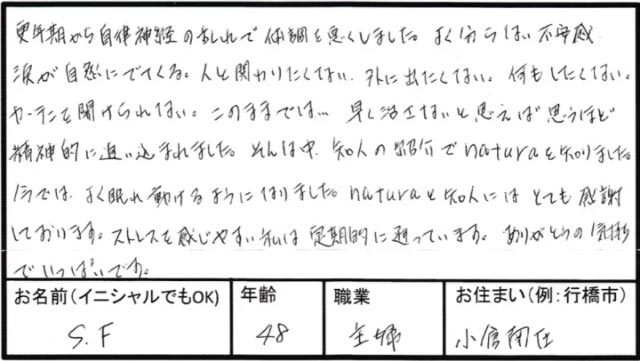 更年期から自律神経のみだれで体調を悪くしました。よく分らない不安感
涙が自然にでてくる。人と関わりたくない、外に出たくない。何もしたくない。
カーテンを開けられない。このままでは… 早く治さないと思えば思うほど
精神的に追い込まれました。そんな中、知人の紹介でnaturaを知りました。
今では、よく眠れ動けるようになりました。naturaと知人にはとても感謝
しております。ストレスを感じやすい私は定期的に通っています。ありがとうの気持ち
でいっぱいです。
お名前（イニシャルでもOK） 年齢 職業 お住まい（例：行橋市）
S.F 48 主婦 小倉南区在住